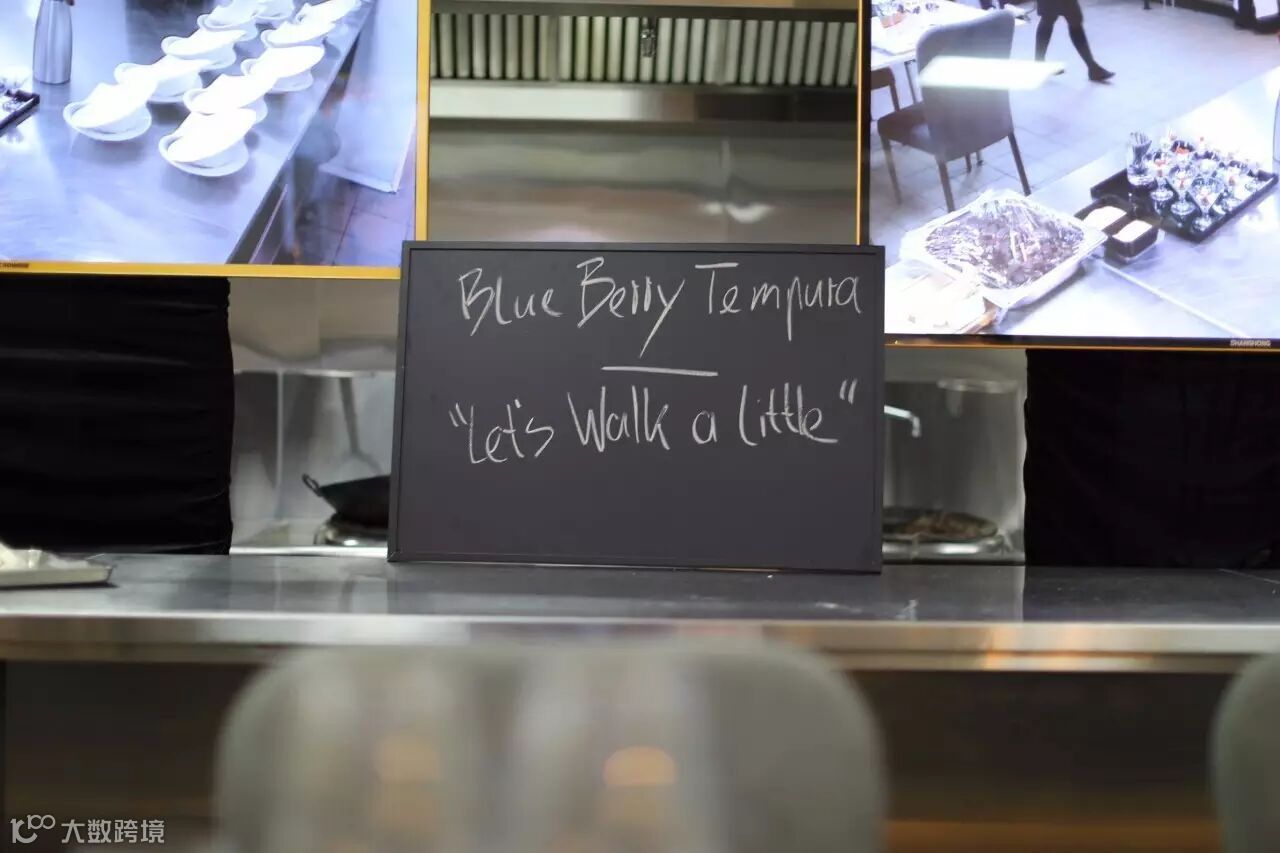 Blue Berry Tempura
"Let's Walk a little"
SHANGHONG
大数跨境